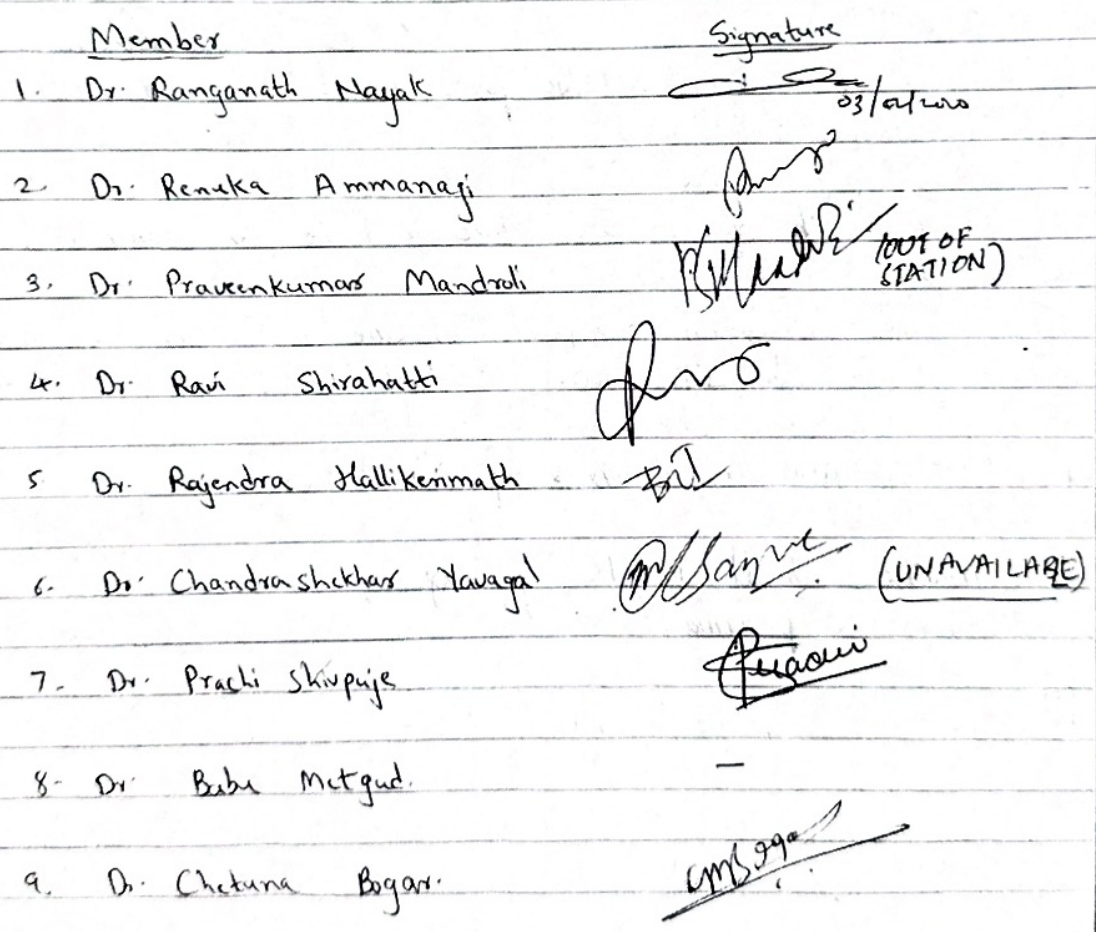 Member Signature
1. Dr. Ranganath Nayak
03/02/2020
2. Dr. Renuka Ammanagi
3. Dr. Praveenkumar Mandroli (OUT OF
STATION)
4. Dr. Ravi Shirahatti
5. Dr. Rajendra Hallikerimath
6. Dr. Chandrashekhar Yavagal (UNAVAILABLE)
7. Dr. Prachi Shivpuje
8. Dr. Babu Metgud. –
9. Dr. Chetana Bogar. CMBogar